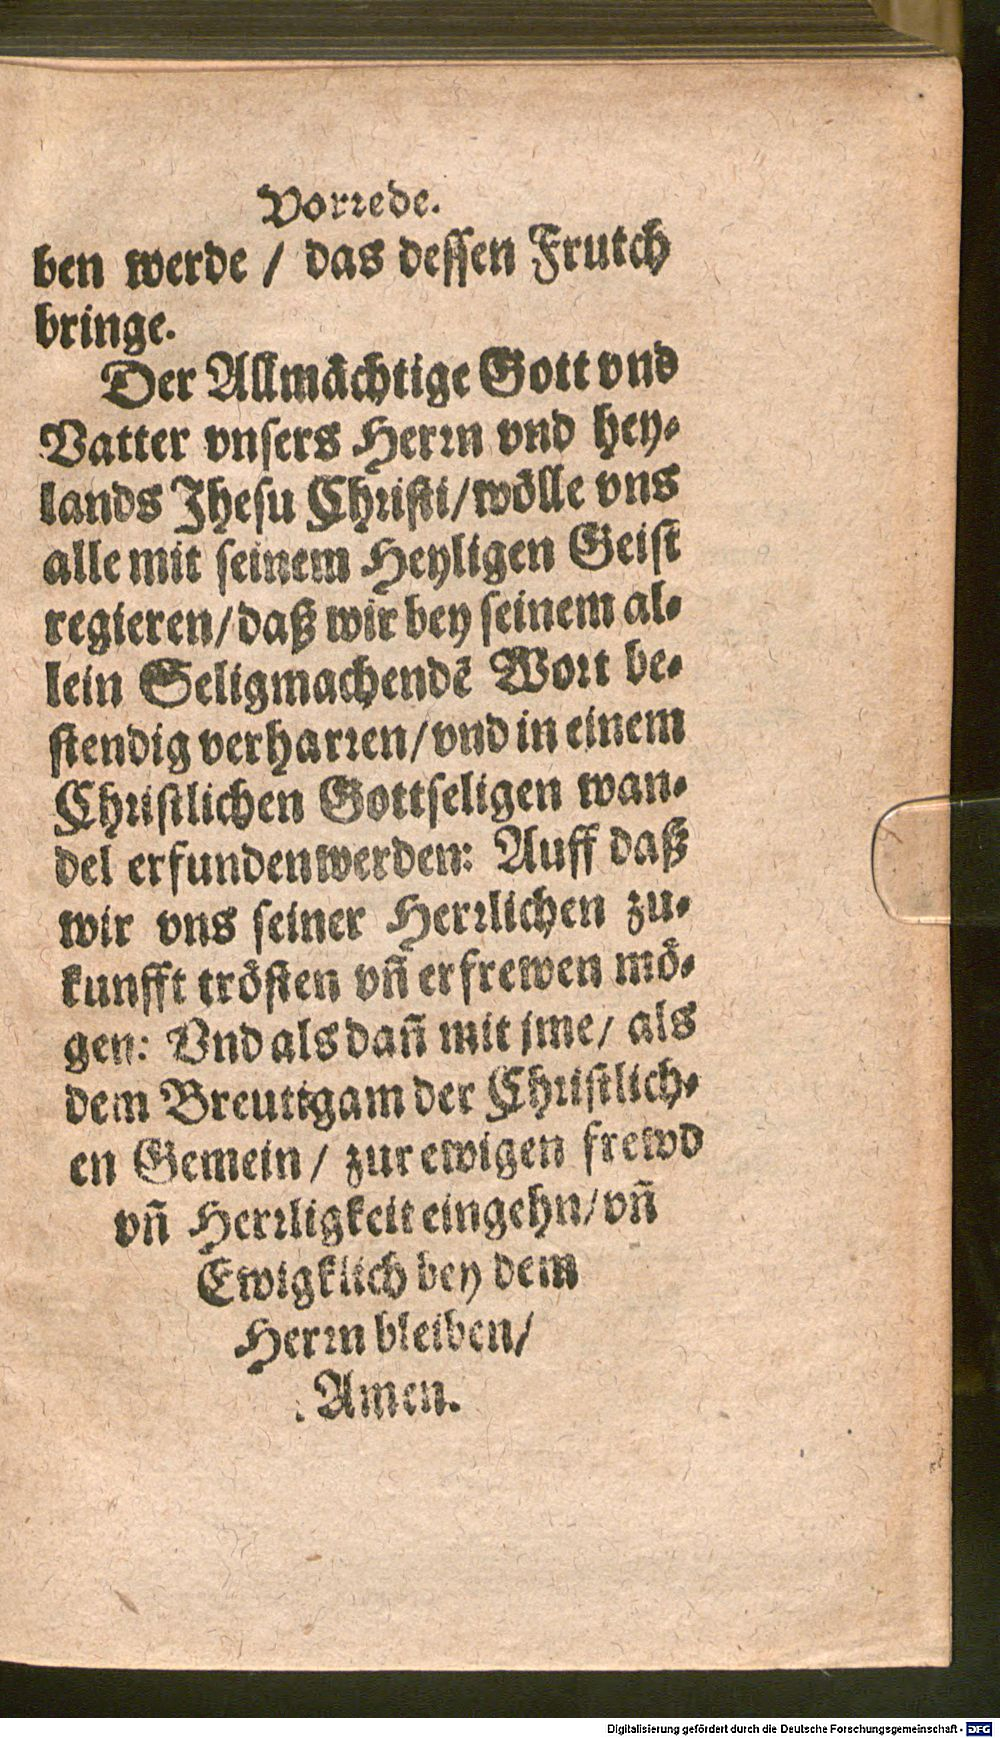 Vorrede.
ben werde / das dessen Frutch
bringe.
Der Allmächtige Gott vnd
Vatter vnsers Herrn vnd hey-
lands Jhesu Christi/wölle vns
alle mit seinem Heyligen Geist
regieren/daß wir bey seinem al-
lein Seligmachendē Wort be-
stendig verharren/vnd in einem
Christlichen Gottseligen wan-
del erfunden werden: Auff daß
wir vns seiner Herrlichen zu-
kunfft trösten vñ erfrewen mö-
gen: Vnd als dañ mit jme/ als
dem Breuttgam der Christlich-
en Gemein / zur ewigen frewd
vñ Herrligkeit eingehn/vñ
Ewigklich bey dem
Herrn bleiben/
Amen.
Digitalisierung gefördert durch die Deutsche Forschungsgemeinschaft - DFG